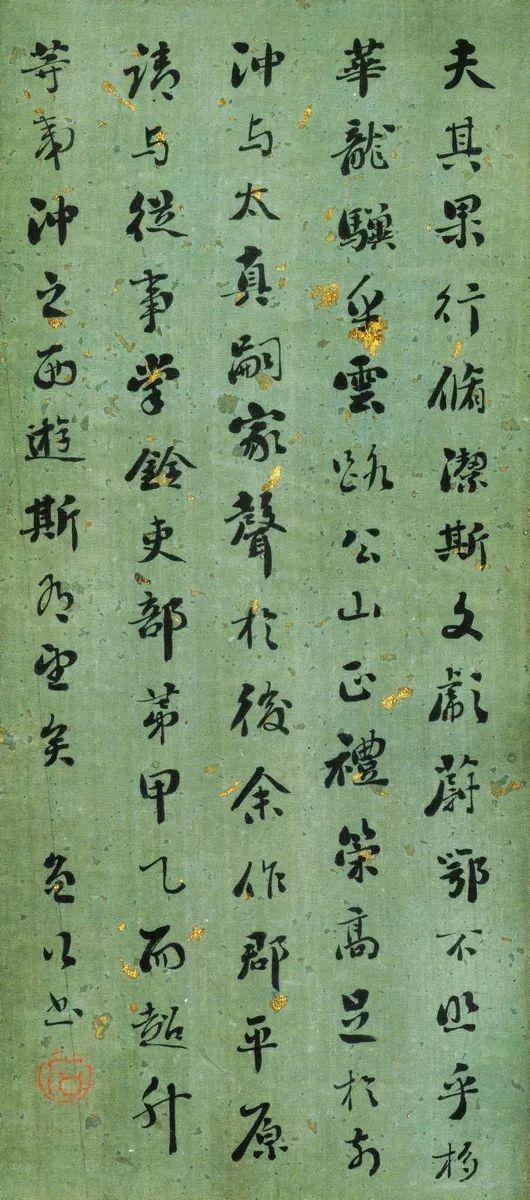 夫其果行脩潔斯文彪蔚鄂不照乎栘
華龍驥乎雲路公山正禮策高足於前
沖与太真嗣家聲於後余作郡平原
請与從事掌銓吏部第甲乙而超升
等夷沖之西遊斯有望矣 以书